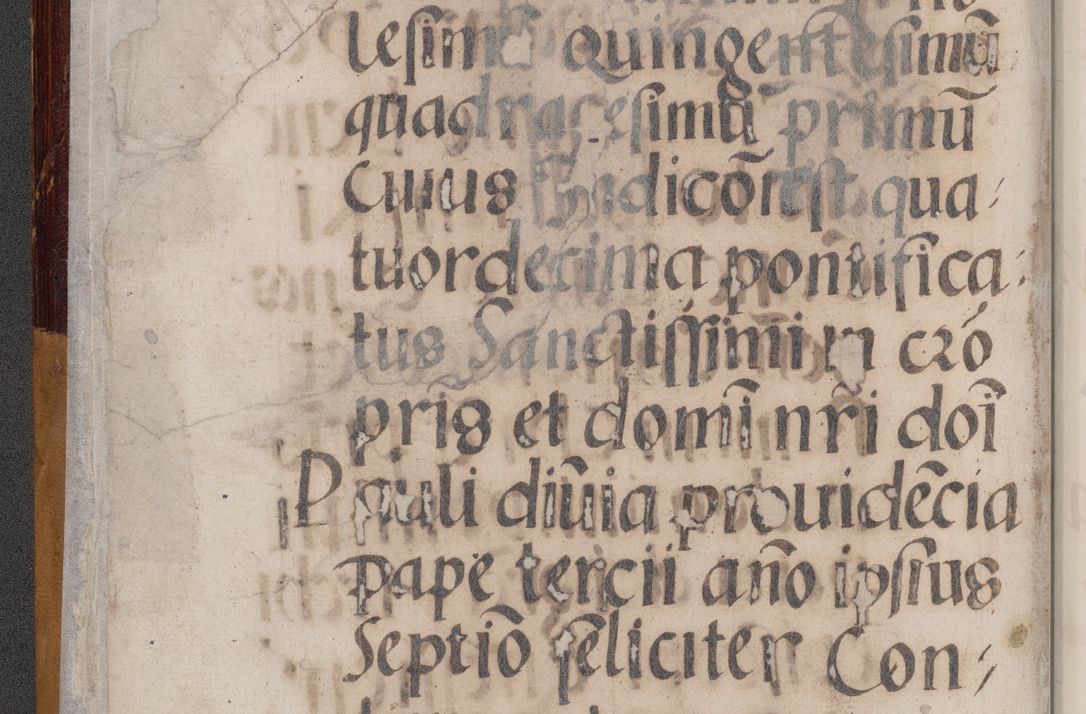 lesimū Quingentesimū
quadragesimū primū
Cuius Indicō est qua-
tuordecima pontifica-
tus Sanctissimi in cró
pris et domī nr̄i doī
Pauli diūia prouidēcia
pape tercii año ipsius
Septiō feliciter Con-